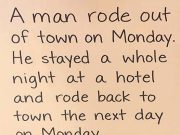 A man rode out
of town on Monday.
He stayed a whole
night at a hotel
and rode back to
town the next day
on Monday